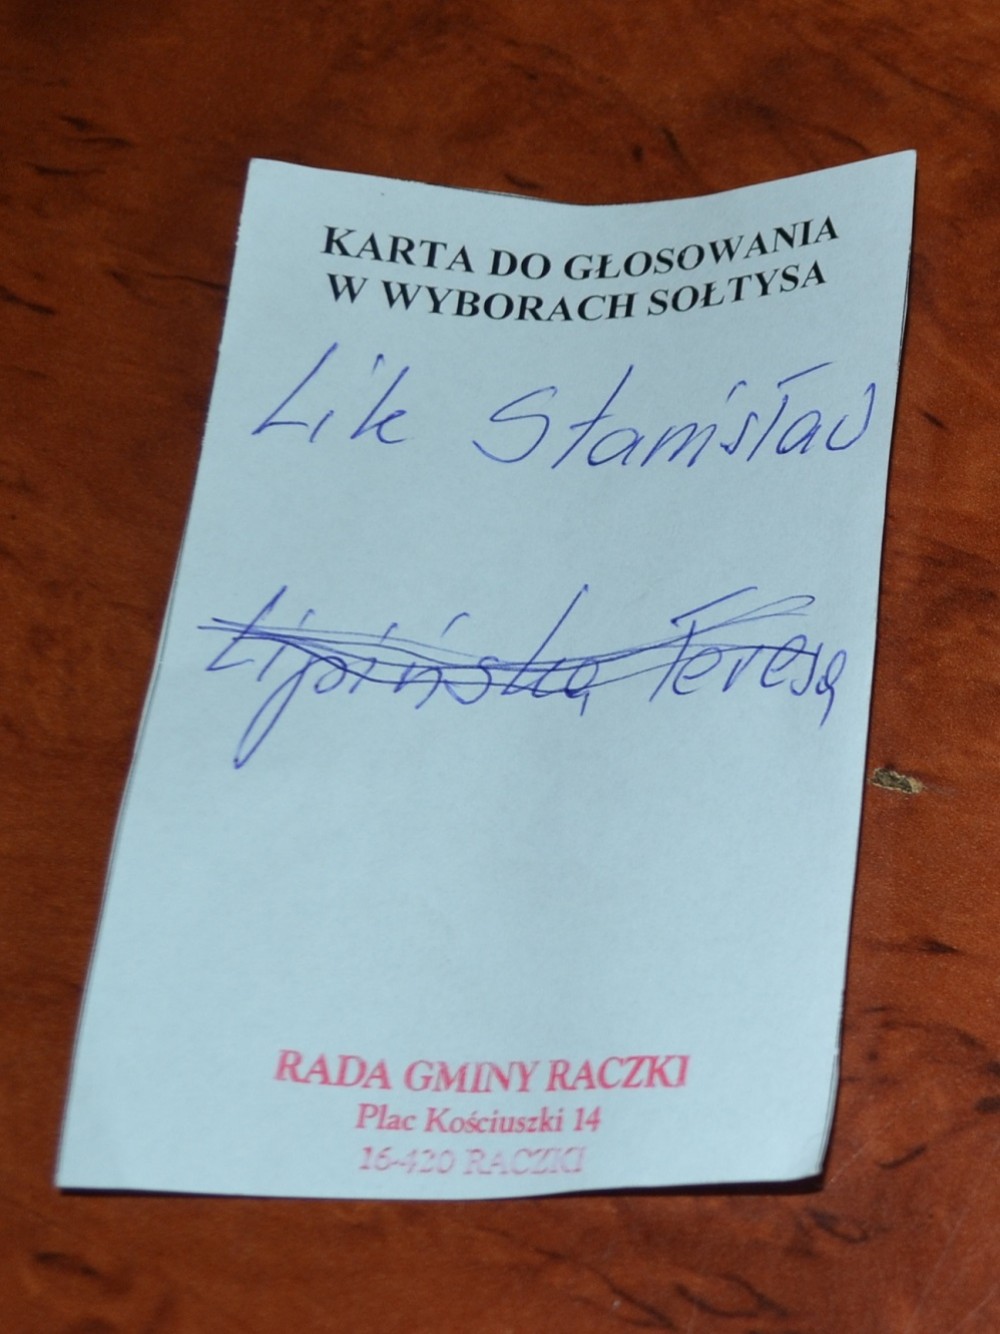 KARTA DO GŁOSOWANIA
W WYBORACH SOŁTYSA
Lik Stanisław
Lipińska Teresa
RADA GMINY RACZKI
Plac Kościuszki 14
16-420 RACZKI